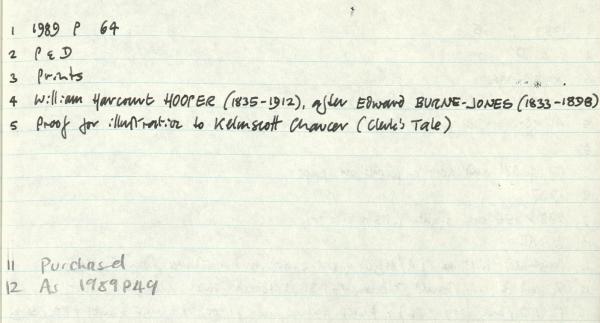 1 1989 P 64
2 P & D
3 Prints
4 William Harcourt HOOPER (1835-1912), after Edward BURNE-JONES (1833-1898)
5 Proof for illustration to Kelmscott Chaucer (Clerk's Tale)
11 Purchased
12 As 1989P49